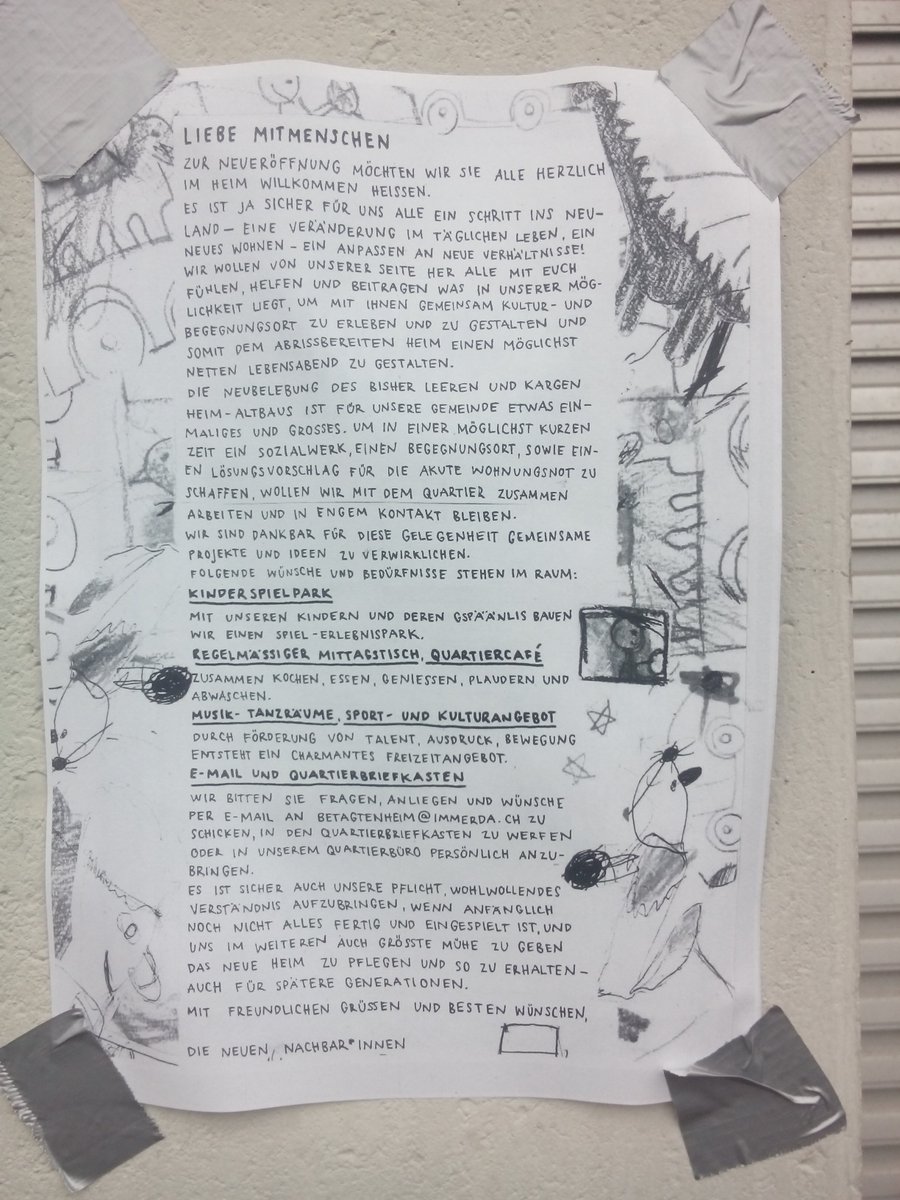 LIEBE MITMENSCHEN
ZUR NEUERÖFFNUNG MÖCHTEN WIR SIE ALLE HERZLICH
IM HEIM WILLKOMMEN HEISSEN.
ES IST JA SICHER FÜR UNS ALLE EIN SCHRITT INS NEU-
LAND – EINE VERÄNDERUNG IM TÄGLICHEN LEBEN, EIN
NEUES WOHNEN – EIN ANPASSEN AN NEUE VERHÄLTNISSE!
WIR WOLLEN VON UNSERER SEITE HER ALLE MIT EUCH
FÜHLEN, HELFEN UND BEITRAGEN WAS IN UNSERER MÖG-
LICHKEIT LIEGT, UM MIT IHNEN GEMEINSAM KULTUR- UND
BEGEGNUNGSORT ZU ERLEBEN UND ZU GESTALTEN UND
SOMIT DEM ABRISSBEREITEN HEIM EINEN MÖGLICHST
NETTEN LEBENSABEND ZU GESTALTEN.
DIE NEUBELEBUNG DES BISHER LEEREN UND KARGEN
HEIM-ALTBAUS IST FÜR UNSERE GEMEINDE ETWAS EIN-
MALIGES UND GROSSES. UM IN EINER MÖGLICHST KURZEN
ZEIT EIN SOZIALWERK, EINEN BEGEGNUNGSORT, SOWIE EIN-
EN LÖSUNGSVORSCHLAG FÜR DIE AKUTE WOHNUNGSNOT ZU
SCHAFFEN, WOLLEN WIR MIT DEM QUARTIER ZUSAMMEN
ARBEITEN UND IN ENGEM KONTAKT BLEIBEN.
WIR SIND DANKBAR FÜR DIESE GELEGENHEIT GEMEINSAME
PROJEKTE UND IDEEN ZU VERWIRKLICHEN.
FOLGENDE WÜNSCHE UND BEDÜRFNISSE STEHEN IM RAUM:
KINDERSPIELPARK
MIT UNSEREN KINDERN UND DEREN GSPÄÄNLIS BAUEN
WIR EINEN SPIEL-ERLEBNISPARK.
REGELMÄSSIGER MITTAGSTISCH, QUARTIERCAFÉ
ZUSAMMEN KOCHEN, ESSEN, GENIESSEN, PLAUDERN UND
ABWASCHEN.
MUSIK- TANZRÄUME, SPORT- UND KULTURANGEBOT
DURCH FÖRDERUNG VON TALENT, AUSDRUCK, BEWEGUNG
ENTSTEHT EIN CHARMANTES FREIZEITANGEBOT.
E-MAIL UND QUARTIERBRIEFKASTEN
WIR BITTEN SIE FRAGEN, ANLIEGEN UND WÜNSCHE
PER E-MAIL AN BETAGTENHEIM@IMMERDA.CH ZU
SCHICKEN, IN DEN QUARTIERBRIEFKASTEN ZU WERFEN
ODER IN UNSEREM QUARTIERBÜRO PERSÖNLICH ANZU-
BRINGEN.
ES IST SICHER AUCH UNSERE PFLICHT, WOHLWOLLENDES
VERSTÄNDNIS AUFZUBRINGEN, WENN ANFÄNGLICH
NOCH NICHT ALLES FERTIG UND EINGESPIELT IST, UND
UNS IM WEITEREN AUCH GRÖSSTE MÜHE ZU GEBEN
DAS NEUE HEIM ZU PFLEGEN UND SO ZU ERHALTEN –
AUCH FÜR SPÄTERE GENERATIONEN.
MIT FREUNDLICHEN GRÜSSEN UND BESTEN WÜNSCHEN,
DIE NEUEN NACHBAR*INNEN